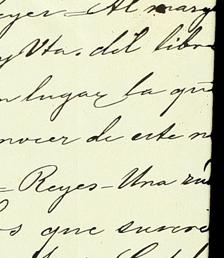 eyes = Al marg
y Vta. del libro
n lugar la que
onocer de este n
= Reyes - Una rú
os que suscri